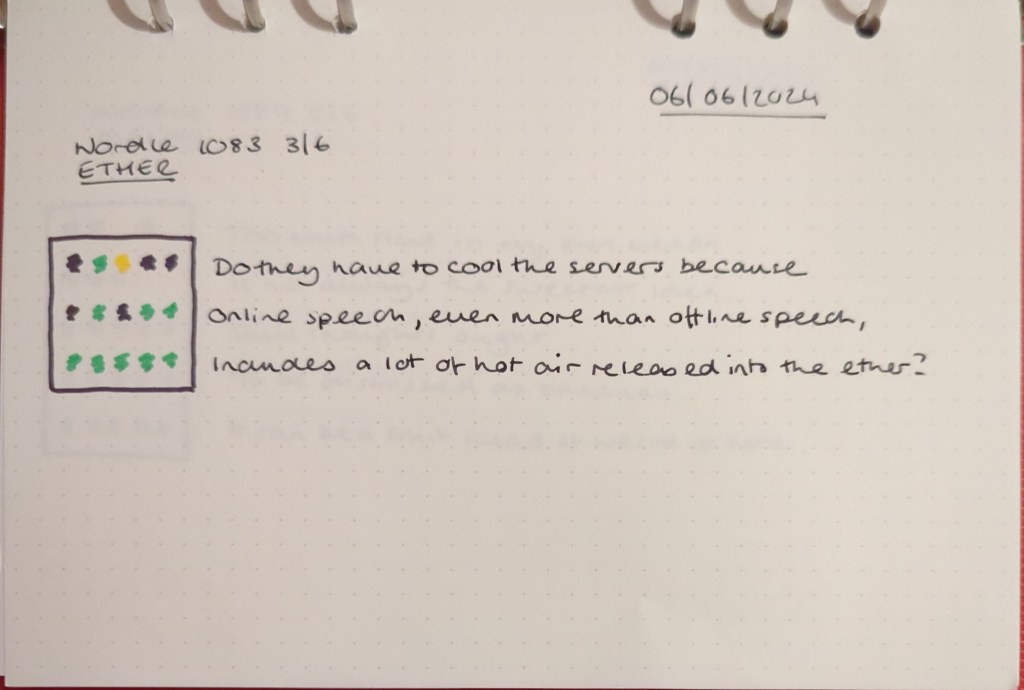 06/06/2024
Wordle 1083 3/6
ETHER
Do they have to cool the servers because
Online speech, even more than offline speech,
Includes a lot of hot air released into the ether?